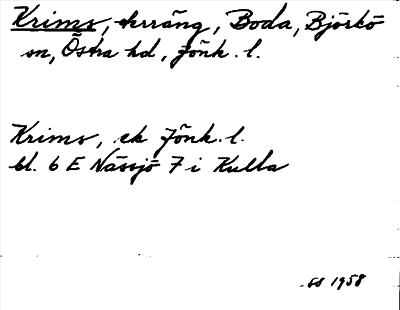 Krims, terräng, Boda, Björkö
sn, Östra hd, Jönk. l.
Krims, ek Jönk. l.
bl. 6 E Nässjö 7 i Kulla
GS 1958